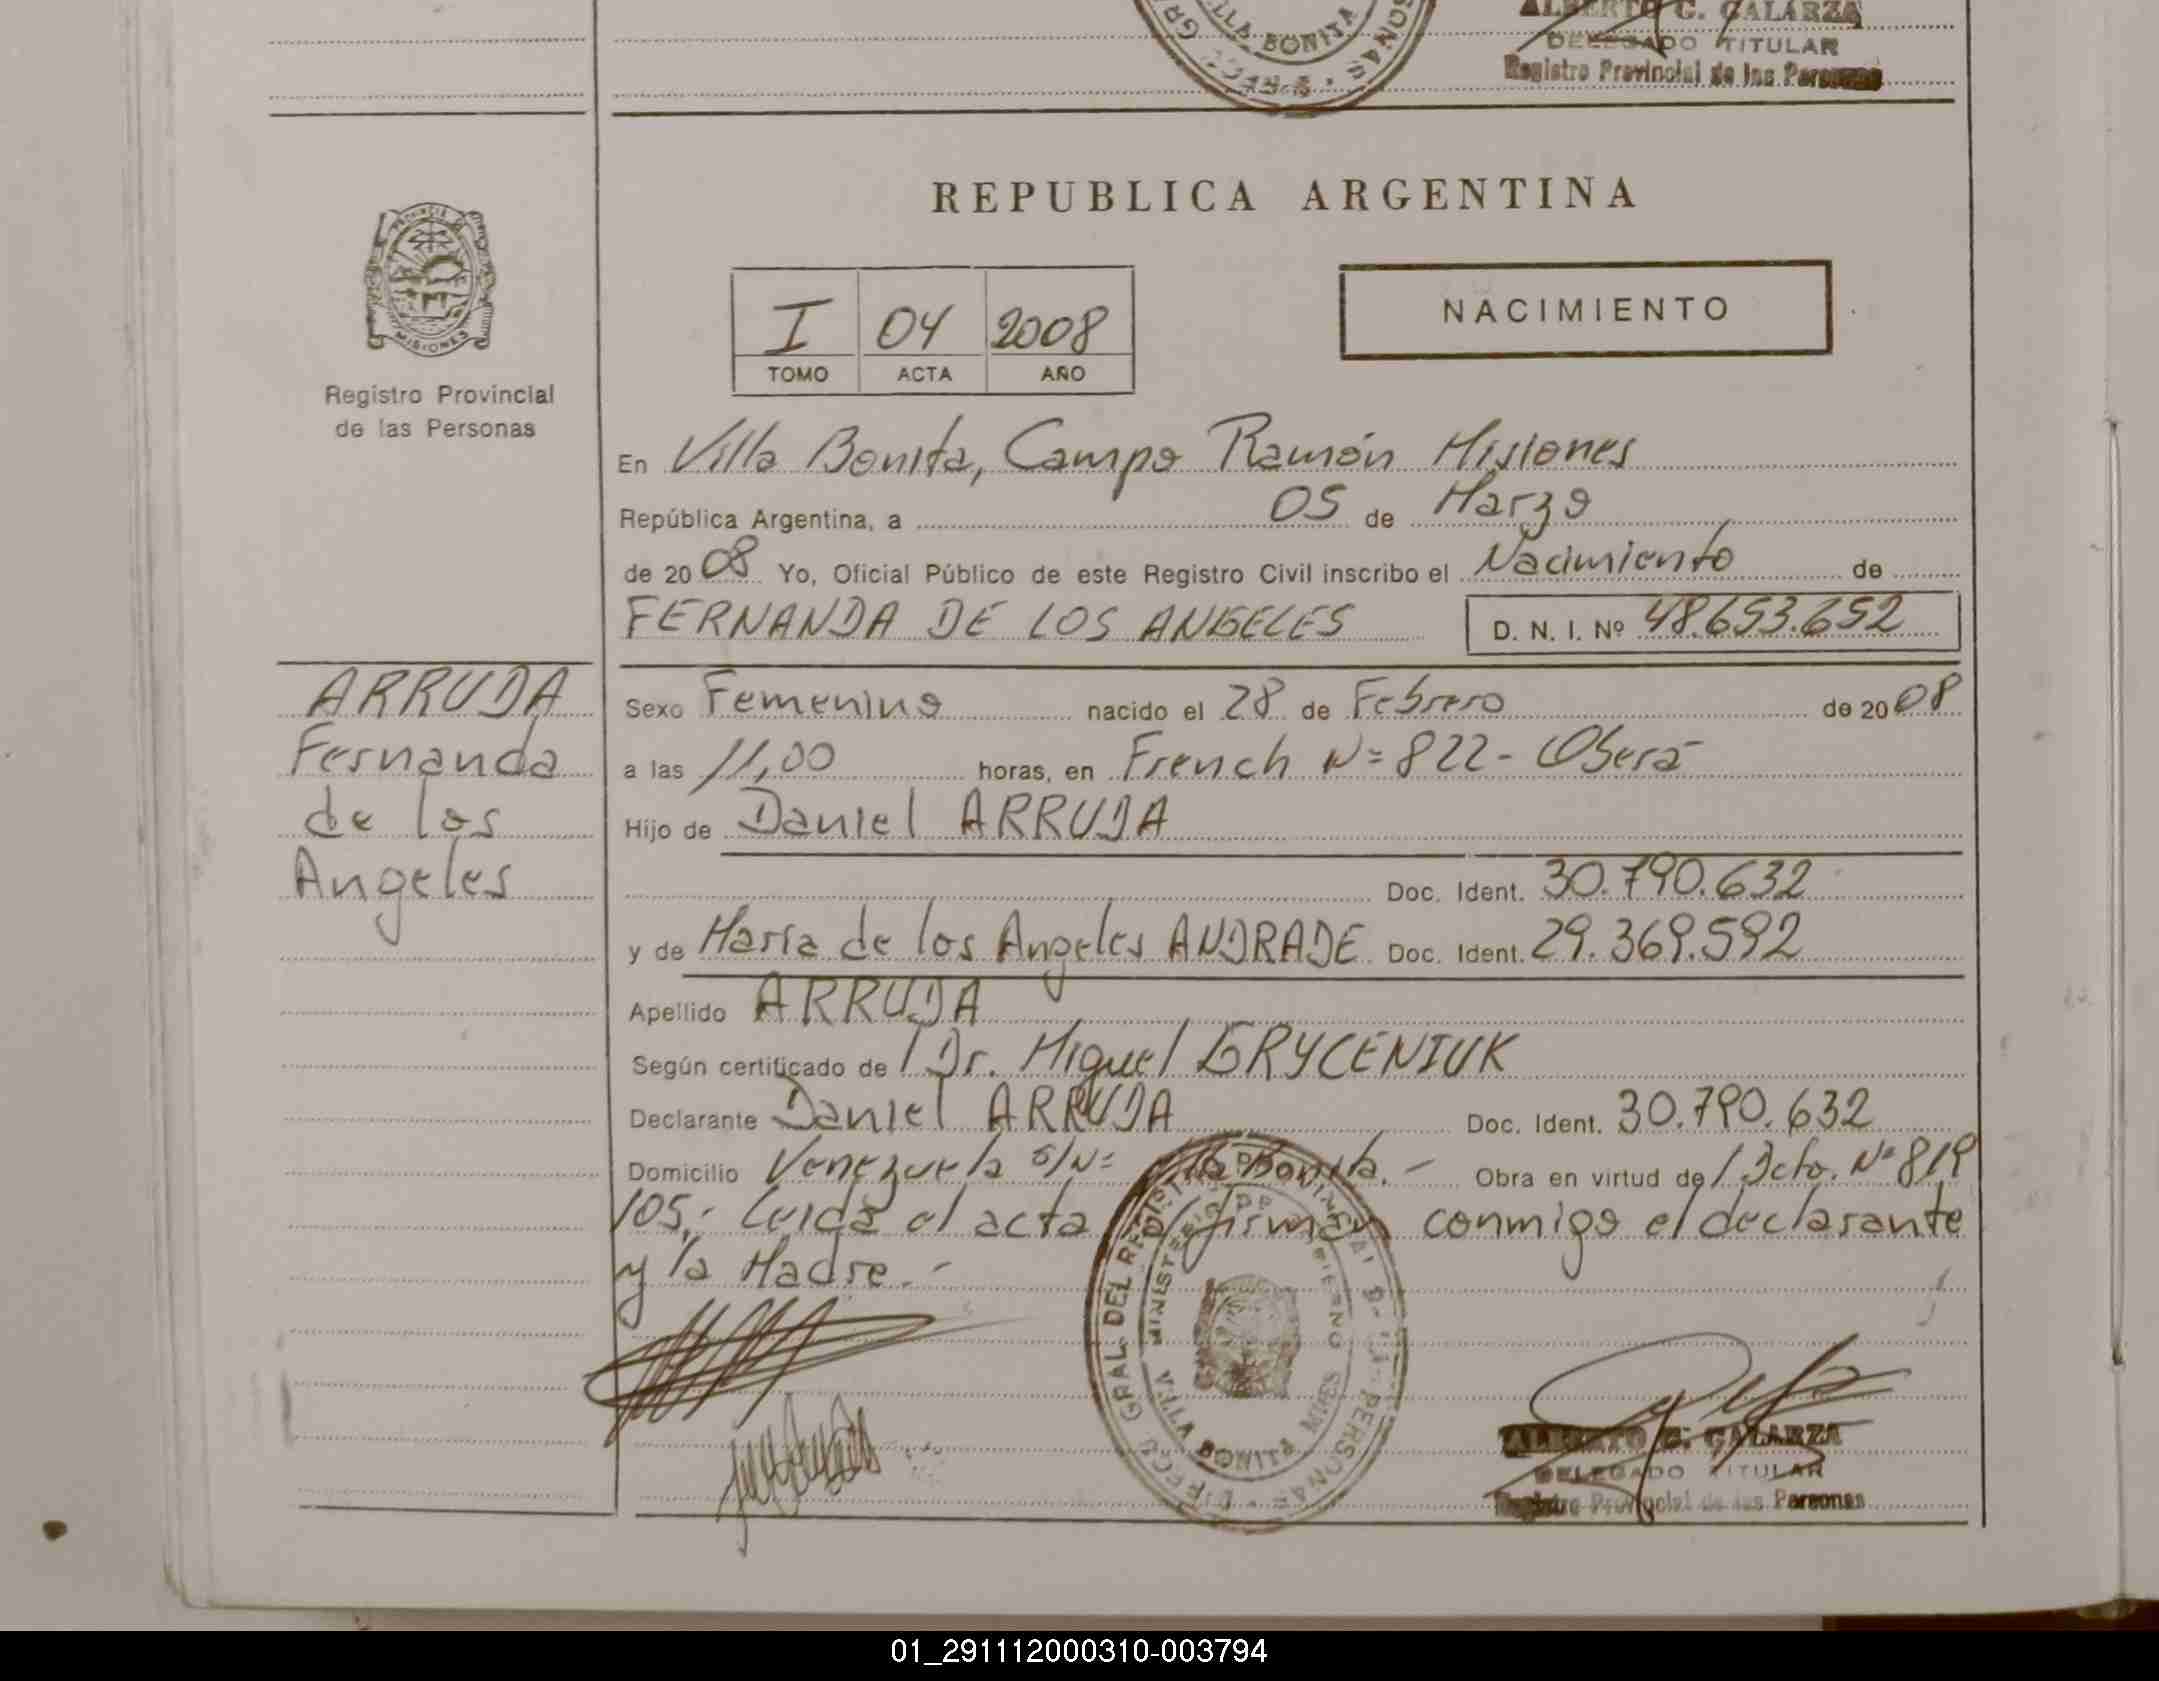 ALBERTO G. GALARZA
DELEGADO TITULAR
Registro Provincial de las Personas
VILLA BONITA
REPUBLICA ARGENTINA
PROVINCIA DE
MISIONES
Registro Provincial
de las Personas
I 04 2008
TOMO ACTA AÑO
NACIMIENTO
En Villa Bonita, Campo Ramón Misiones
República Argentina, a 05 de Marzo
de 2008 Yo, Oficial Público de este Registro Civil inscribo el Nacimiento de
FERNANDA DE LOS ANGELES D. N. I. Nº 48.653.652
ARRUDA
Fernanda
de los
Angeles
Sexo Femenino nacido el 28 de Febrero de 2008
a las 11,00 horas, en French Nº 822- Oberá
Hijo de Daniel ARRUDA
Doc. Ident. 30.790.632
y de María de los Angeles ANDRADE Doc. Ident. 29.369.592
Apellido ARRUDA
Según certificado de / Dr. Miguel GRYCENIUK
Declarante Daniel ARRUDA Doc. Ident. 30.790.632
Domicilio Venezuela s/Nº Villa Bonita.- Obra en virtud de / Dcto. Nº 819
105.- Leida el acta firman conmigo el declarante
y la Madre.-
DIREC. GRAL. DEL REGIST. PROVINCIAL DE LAS PERSONAS
MINISTERIO DE GOBIERNO
VILLA BONITA MNES
ALBERTO G. GALARZA
DELEGADO TITULAR
Registro Provincial de las Personas
01_291112000310-003794